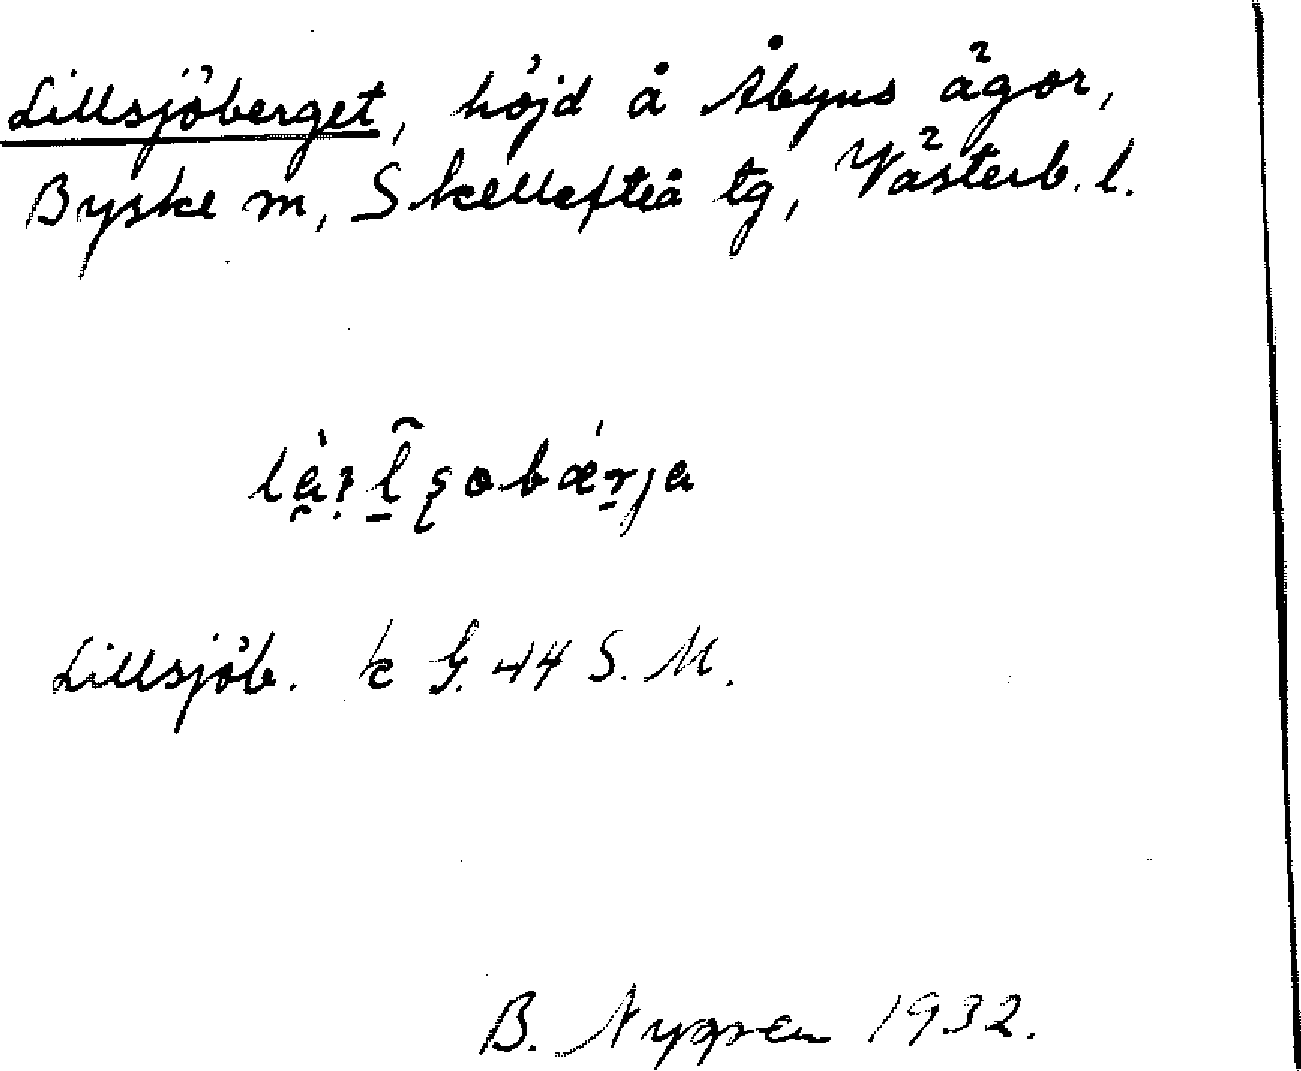 Lillsjöberget, höjd å Åbyns ägor,
Byske sn, Skellefteå tg, Västerb. l.
Lillsjöb. k G. 44 S. M.
B. Nygren 1932.